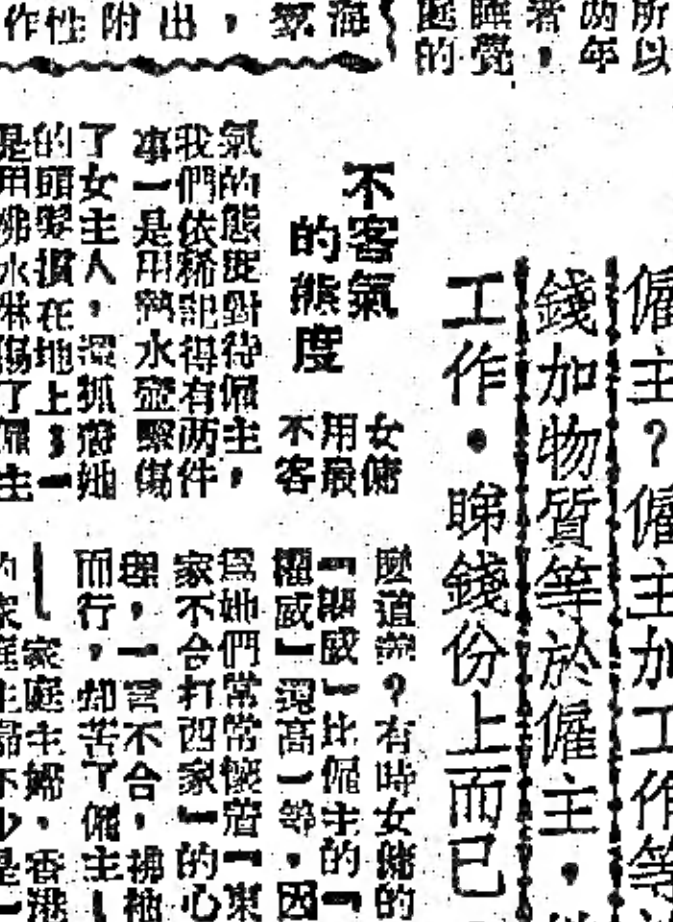 所以
两年
者，
睡覺
庭的
海
氣
，出附性作
僱主？僱主加工作等
錢加物質等於僱主，
工作。睇錢份上而已
不客氣
的態度
女傭
用最
不客
氣的態度對待僱主，
我們依稀記得有两件
事一是用熱水壺擊傷
了女主人，還抓着她
的頭髮摜在地上；一
是用沸水淋傷了僱主
麽道辦？有時女傭的
「職威」比僱主的「
權威」還高一等，因
爲她們常常懷着「東
家不合打西家」的心
理，一言不合，拂袖
而行，却苦了僱主！
家庭主婦，香港
的家庭主婦不少是一